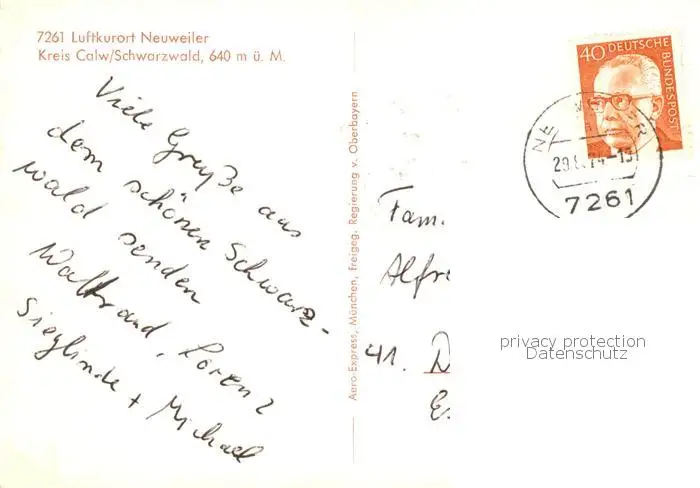 7261 Luftkurort Neuweiler
Kreis Calw/Schwarzwald, 640 m ü. M.
Viele Grüße aus
dem schönen Schwarz-
wald senden
Waltraud, Lorenz
Sieglinde + Michael
Aero-Express, München, freigeg. Regierung v. Oberbayern
40 DEUTSCHE
BUNDESPOST
7261
Fam.
Alfre
41. D
E
privacy protection
Datenschutz